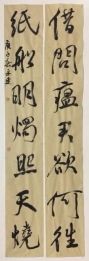 借問瘟君欲何往
紙船明燭照天燒